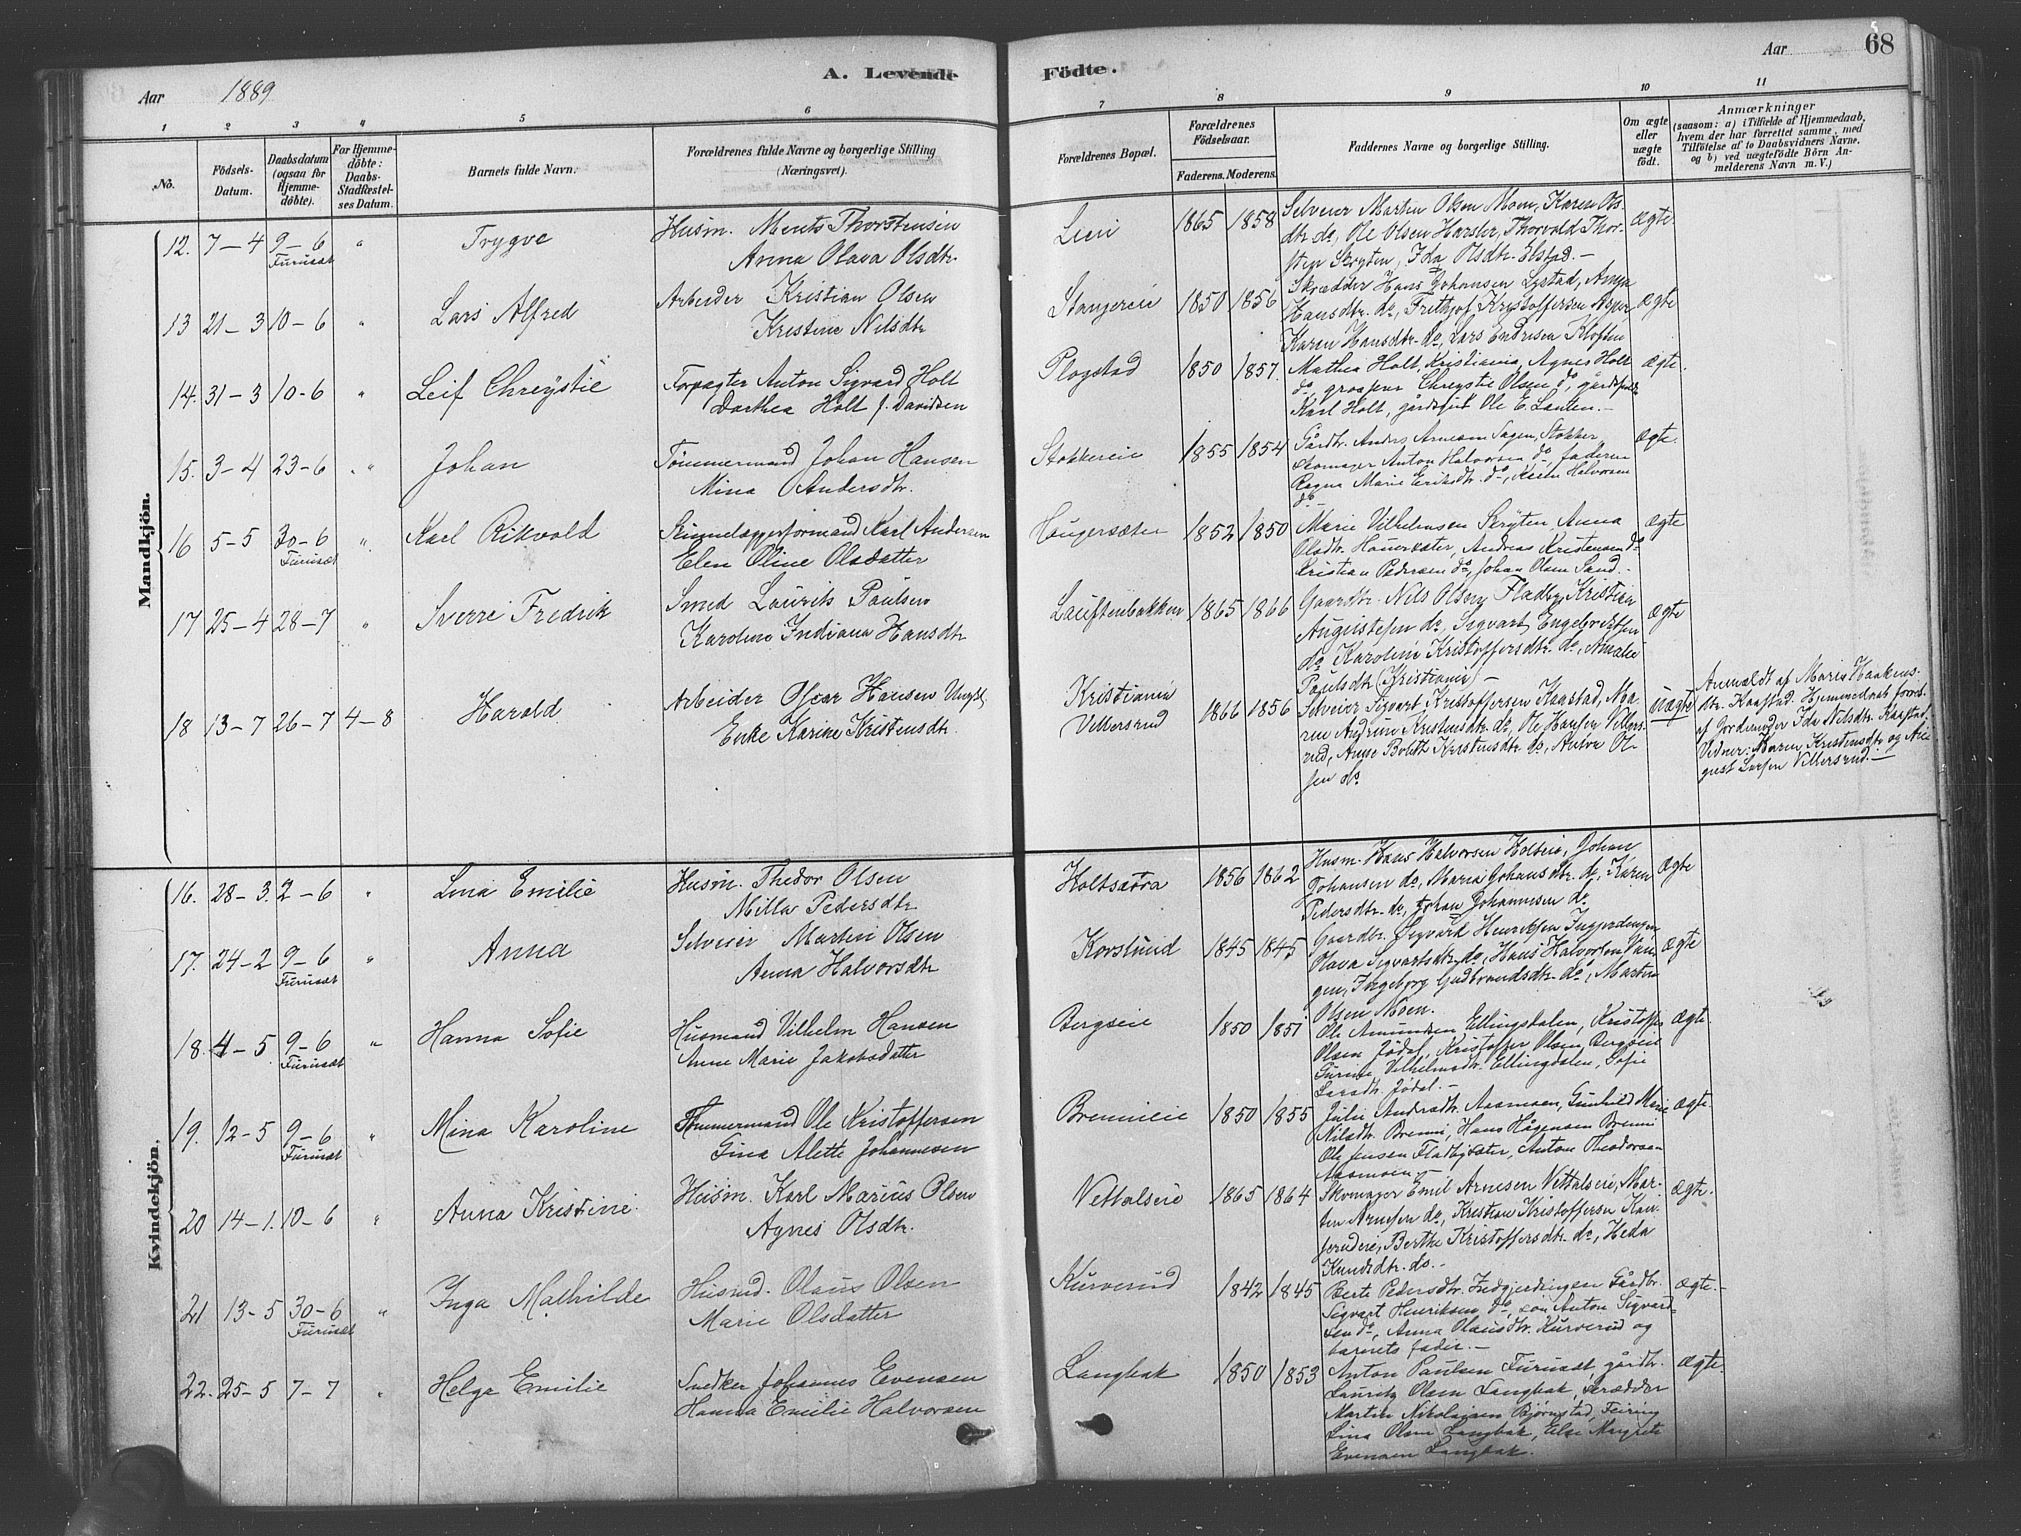 Aar 1889
A. Levende Födte.
Aar 68
1 2 3 4 5 6 7 8 9 10 11
No.
Födsels-
Datum.
Daabsdatum
(ogsaa for
Hjemme-
döbte).
For Hjemme-
döbte:
Daabs-
Stadfæstel-
ses Datum.
Barnets fulde Navn.
Forældrenes fulde Navne og borgerlige Stilling
(Næringsvei).
Forældrenes Bopæl.
Forældrenes
Födselsaar.
Faderens. Moderens.
Faddernes Navne og borgerlige Stilling.
Om ægte
eller
uægte
födt.
Anmærkninger
(saasom: a) i Tilfælde af Hjemmedaab,
hvem der har forrettet samme, med
Tilföielse af to Daabsvidners Navne,
og b) ved uægtefödte Börn An-
melderens Navn m. V.)
Mandkjön.
12. 7-4 9-6 " Trygve Husm. Ments Thorstensen Lien 1865 1858 Selveier Martin Olsen Moen, Karen Ols- ægte.
Furuset Anna Olava Olsdtr. dtr. do, Ole Olsen Harsler, Thorvald Thor-
sten Skryten, Ida Olsdtr. Elstad.-
13 21-3 10-6 " Lars Alfred Arbeider Kristian Olsen Stangereie 1850 1856 Skrædder Hans Johansen Lystad, Anna ægte
Kristine Nilsdtr Hansdtr. do, Frithjof Kristoffersen Asper
Karen Hansdtr. do, Lars Endresen Kloften
14. 31-3 10-6 " Leif Chreystie Forpagter Anton Sigvard Holt Plogstad 1850 1857. Mathea Holt, Kristiania, Agnes Holt ægte.
Dorthea Holt f. Davidsen do, Chreystie Olsen do,
Karl Holt, Ole E. Lauten.-
15. 3-4 23-6 " Johan Tömmermand Johan Hansen Stokkereie 1855 1854 Gårdbr. Anders Arnesen Sagen, Stokker ægte.
Mina Andersdtr. Skomager Anton Halvorsen do, faderen
Ragna Marie Eriksdtr. do, Halvorsen
do
16 5-5 30-6 " Karl Rikvold Karl Andersen Haugersæter 1852 1850 Marie Vilhelmsen Skryten, Anna ægte
Furuset Elen Oline Olsdatter Olsdtr. Hauersæter, Andreas Kristensen do
Kristian Pedersen do, Johan Olsen Sand.-
17 25-4 28-7 " Sverre Fredrik Smed Laurits Paulsen Lauftenbakken 1865 1866 Gaardbr. Nils Olsen Fladby, Kristian ægte
Karoline Indiana Hansdtr Augustesen do, Sigvart Engebretsen
do, Karoline Kristoffersdtr. do, Amalie
Paulsdtr. (Kristiania)-
18 13-7 26-7 4-8 Harald Arbeider Oscar Hansen Ungkl. Kristiania 1866 1856 Selveier Sigvart Kristoffersen Kaastad, Ma- uægte Anmeldt af Maria Haakens-
Enke Karine Kristensdtr. Vellersrud ren Andrine Kristensdtr. do, Ole Hansen Villers- dtr. Kaastad. Hjemmedøbt forret.
rud, Anne Boleth Kristensdtr. do, Anton Ol- af Jordemoder Ida Nilsdtr. Kaastad.
sen do Vidner: Maren Kristensdtr. og Au-
gust Larsen Villersrud.-
Kvindekjön.
16. 28-3. 2-6 " Lina Emilie Husm. Thedor Olsen Holtsætra 1856 1862 Husm. Hans Halvorsen Holteie, Johan ægte
Milla Pedersdtr. Johansen do, Maria Johansdtr. do, Karen
Pedersdtr. do, Johan Johannesen do
17. 24-2 9-6 " Anna Selveier Martin Olsen Korslund 1845 1845 Gaardbr. Sigvart Henriksen Ingjerdingen, ægte
Furuset Anna Halvorsdtr Olava Sigvartsdtr. do, Hans Halvorsen Van-
gen, Ingeborg Gudbrandsdtr. do, Martin
Olsen Moen.
18. 4-5. 9-6 " Hanna Sofie Husmand Vilhelm Hansen Bergseie 1850 1851 Ole Amundsen Ellingsdalen, Kristoffer ægte.
Furuset Anne Marie Jakobsdatter Olsen Jødal, Kristoffer Olsen Bergseie
Gurine Vilhelmsdtr. Ellingsdalen, Sofie
Larsdtr. Jødal.-
19. 12-5 9-6 " Mina Karoline Tömmermand Ole Kristoffersen Brennieie 1850 1855 Julie Andrsdtr. Aasmoen, Gunhild Marie ægte.
Furuset Gina Alette Johannesen Nilsdtr. Brenni, Hans Hågensen Brenni
Ole Jensen Fladbysæter, Anton Theodorsen
Aasmoen-
20 14-1. 10-6 " Anna Kristine Husm. Karl Marius Olsen Nettalseie 1865 1864 Skomager Emil Arnesen Nettalseie, Mar- ægte.
Agnes Olsdtr. ten Arnesen do, Kristian Kristoffersen Kau-
serudeie, Berthe Kristoffersdtr. do, Heda
Knudsdtr. do.-
21 13-5 30-6 " Inga Mathilde Husmd. Olaus Olsen Kurverud 1842 1845 Berte Pedersdtr. Indgjerdingen Gårdbr. ægte.-
Furuset Marie Olsdatter Sigvart Henriksen do, søn Anton Sigvard-
sen do, Anna Olausdtr. Kurverud og
barnets fader.-
22. 25-5 7-7 " Helga Emilie Snedker Johannes Evensen Langbak 1850 1853 Anton Paulsen Furuset, gårdbr. ægte.
Hanna Emilie Halvorsen Lauritz Olsen Langbak, Skrædder
Martin Nikolaisen Bjørnstad, Feiring
Lina Olsen Langbak, Else Margrete
Evensen Langbak.